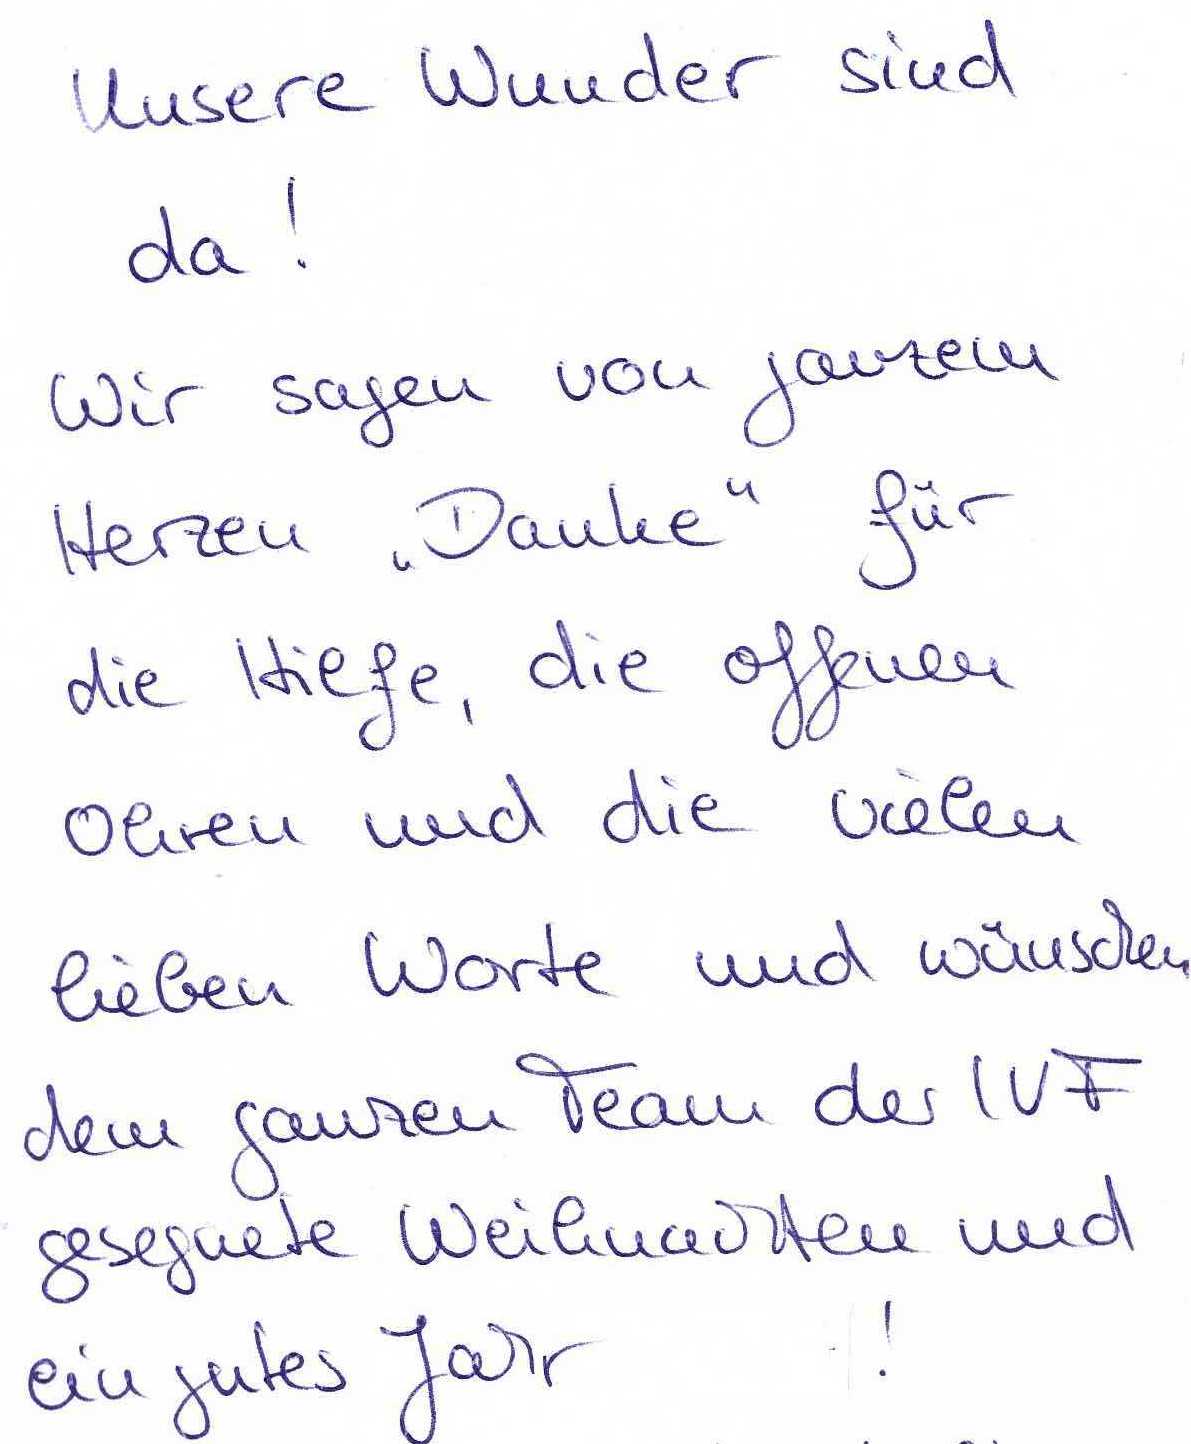 Unsere Wunder sind
da!
Wir sagen von ganzem
Herzen „Danke“ für
die Hilfe, die offenen
Ohren und die vielen
lieben Worte und wünschen
dem ganzen Team der IVF
gesegnete Weihnachten und
ein gutes Jahr !